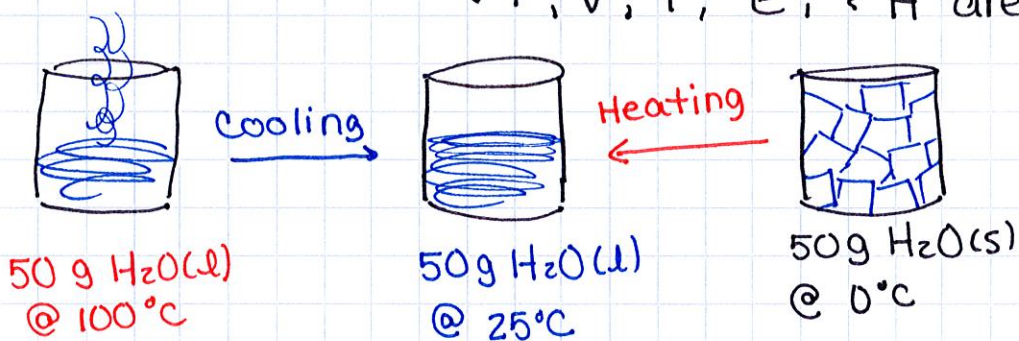 P, V, T, E, & H are
Cooling
Heating
50 g H₂O(l)
@ 100°C
50g H₂O(l)
@ 25°C
50g H₂O(s)
@ 0°C